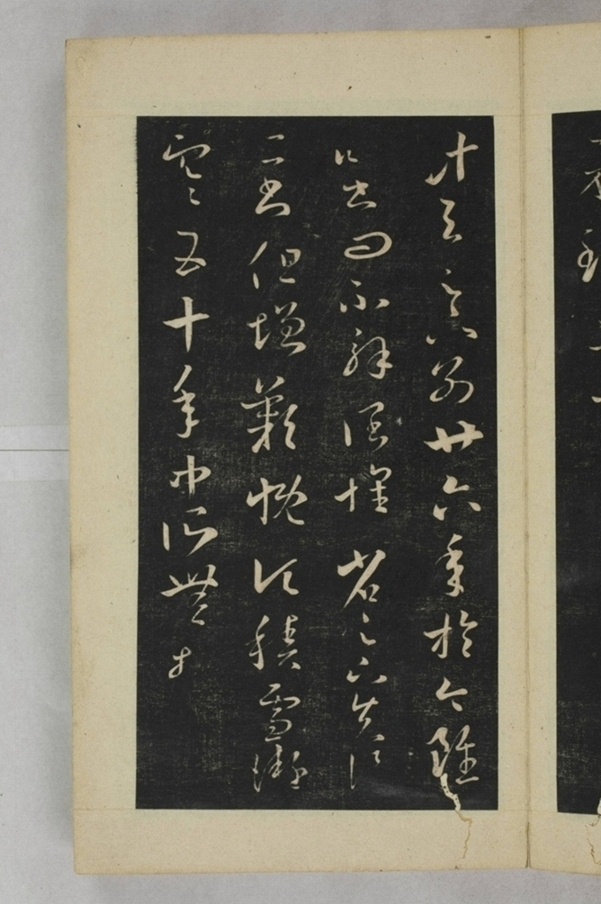 計与足下別廿六年於今雖
時書問不解闊懷省足下先後
二書但增歎慨頃積雪凝
寒五十年中所無